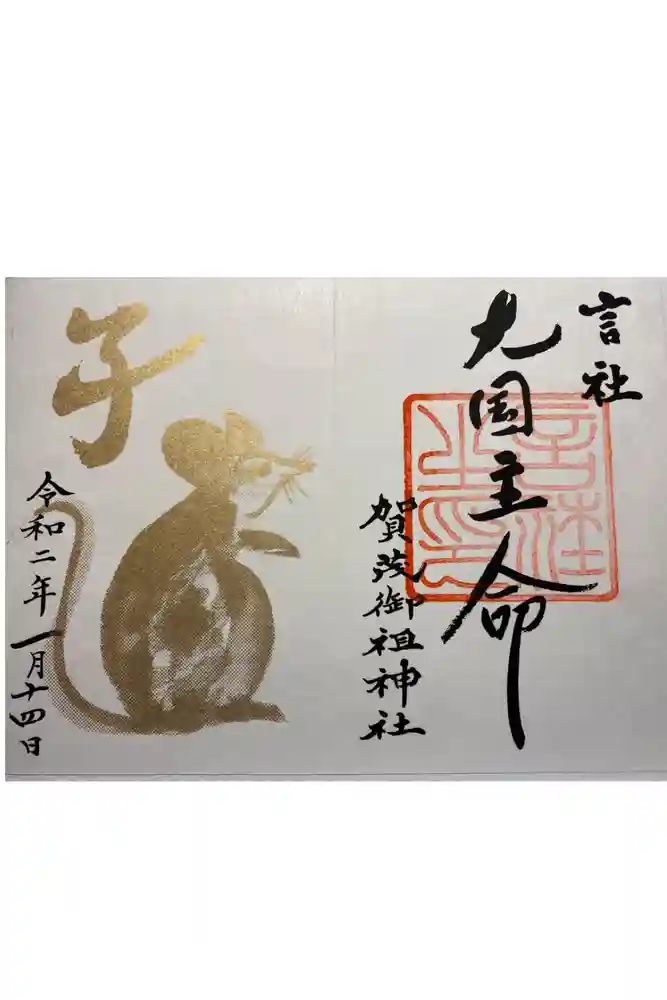 言社
大国主命
賀茂御祖神社
子
令和二年一月十四日